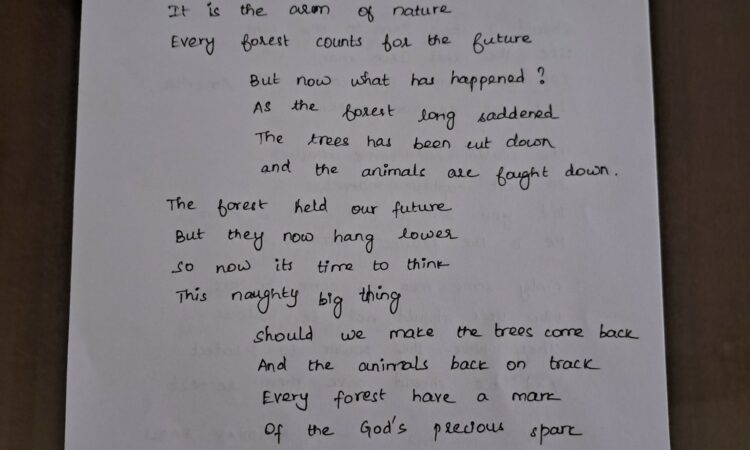 It is the arm of nature
Every forest counts for the future
But now what has happened?
As the forest long saddened
The trees has been cut down
and the animals are faught down.
The forest held our future
But they now hang lower
so now its time to think
This naughty big thing
should we make the trees come back
And the animals back on track
Every forest have a mark
Of the God's precious spark